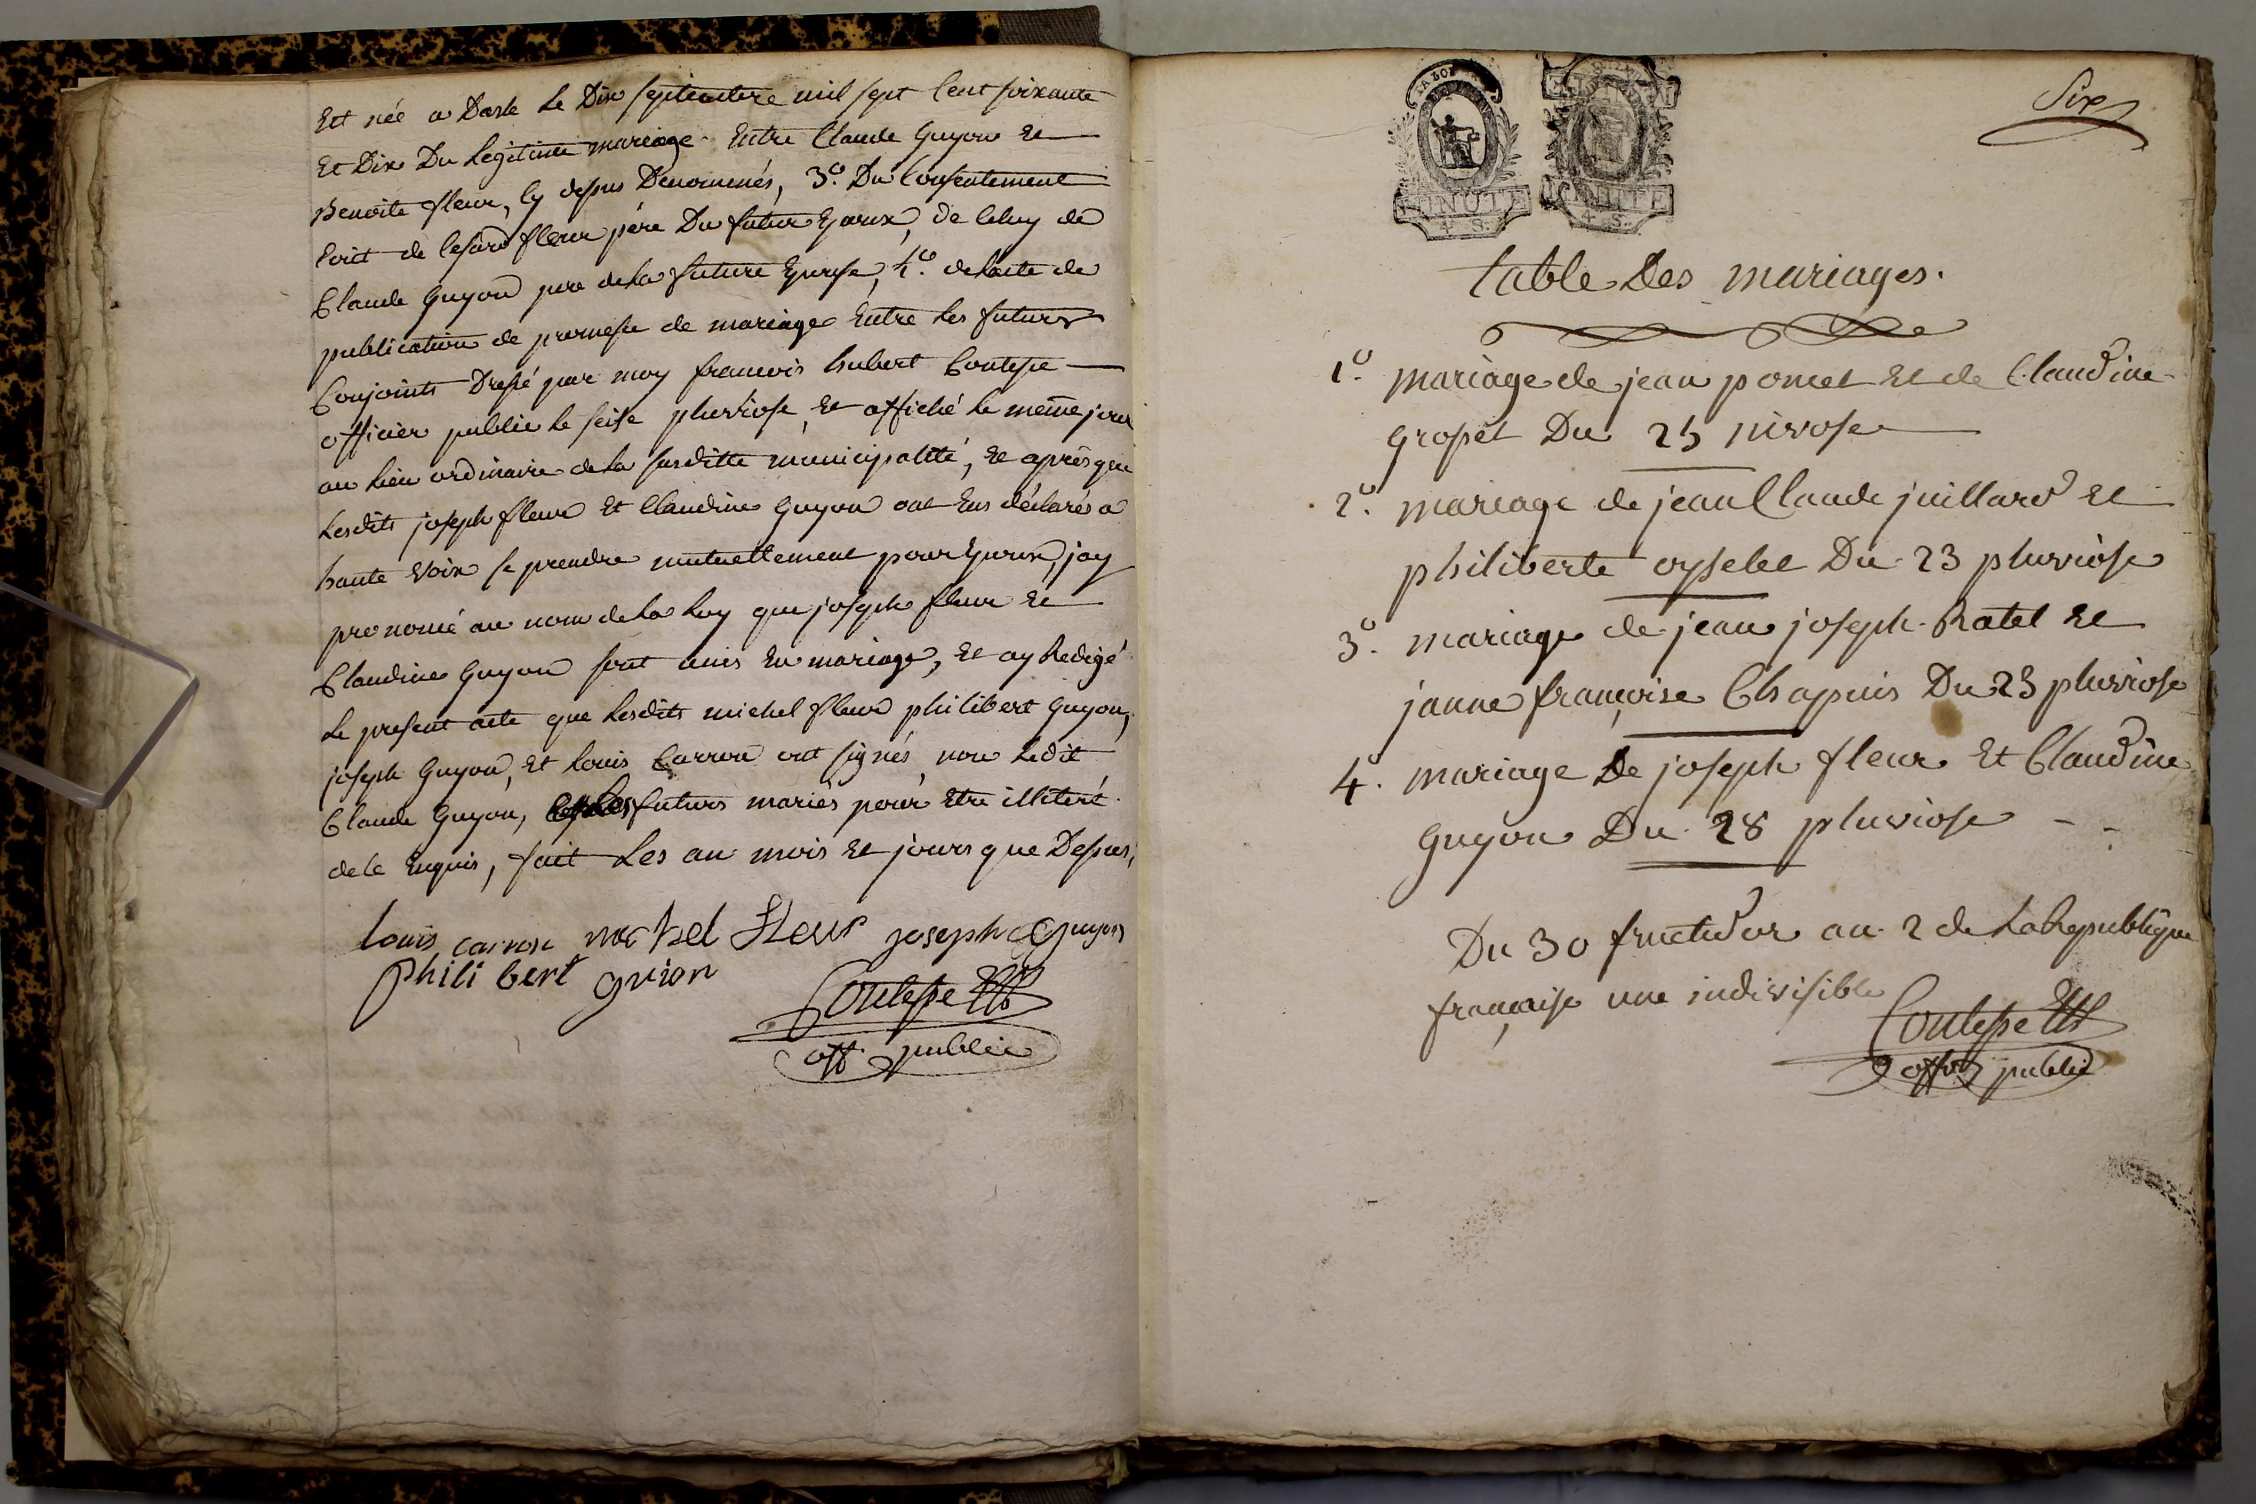 Est née a Darle le Dix septembre mil sept cent soixante
Et Dix Du Legitime mariage Entre Claude Guyon Et
Benoite fleur, cy dessus Dénommés, 3º. Du Consentement
Ecrit de Cesard fleur père Du futur Epoux, de celuy de
Claude Guyon pere de la future Epouse, 4º. de lacte de
publication de promesse de mariage Entre les futurs
Conjoints Dressé par moy francois hubert Coutesse
officier public le seise pluviose, et affiché le même jour
au lieu ordinaire de la susditte municipalité, et après que
Lesdits joseph fleur Et Claudine Guyon ont Eus déclarés a
haute voix se prendre mutuellement pour Epoux, jay
prononcé au nom de la Loy que joseph fleur Et
Claudine Guyon sont unis En mariage, Et ay Redigé
Le present acte que Lesdits michel fleur philibert Guyon,
joseph Guyon, Et Louis Carron ont signés non Ledit
Claude Guyon, Les futurs mariés pour Etre illiteré
de ce Enquis, fait Les an mois Et jours que Dessus,
louis carron michel fleur joseph Guyon
philibert guion
Coutesse
off. public
MINUTE
4 S.
MINUTE
4 S.
Six
table Des mariages.
1º. mariage de jean pomet Et de Claudine
Grosset Du 25 nivose
2º. mariage de jean Claude juillard Et
philiberte oysellet Du 23 pluviose
3º. mariage de jean joseph Ratel Et
janne françoise Chapuis Du 23 pluviose
4º. mariage De joseph fleur Et Claudine
Guyon Du 28 pluviose
Du 30 fructidor an 2 de La Republique
française une indivisible
Coutesse
offer public